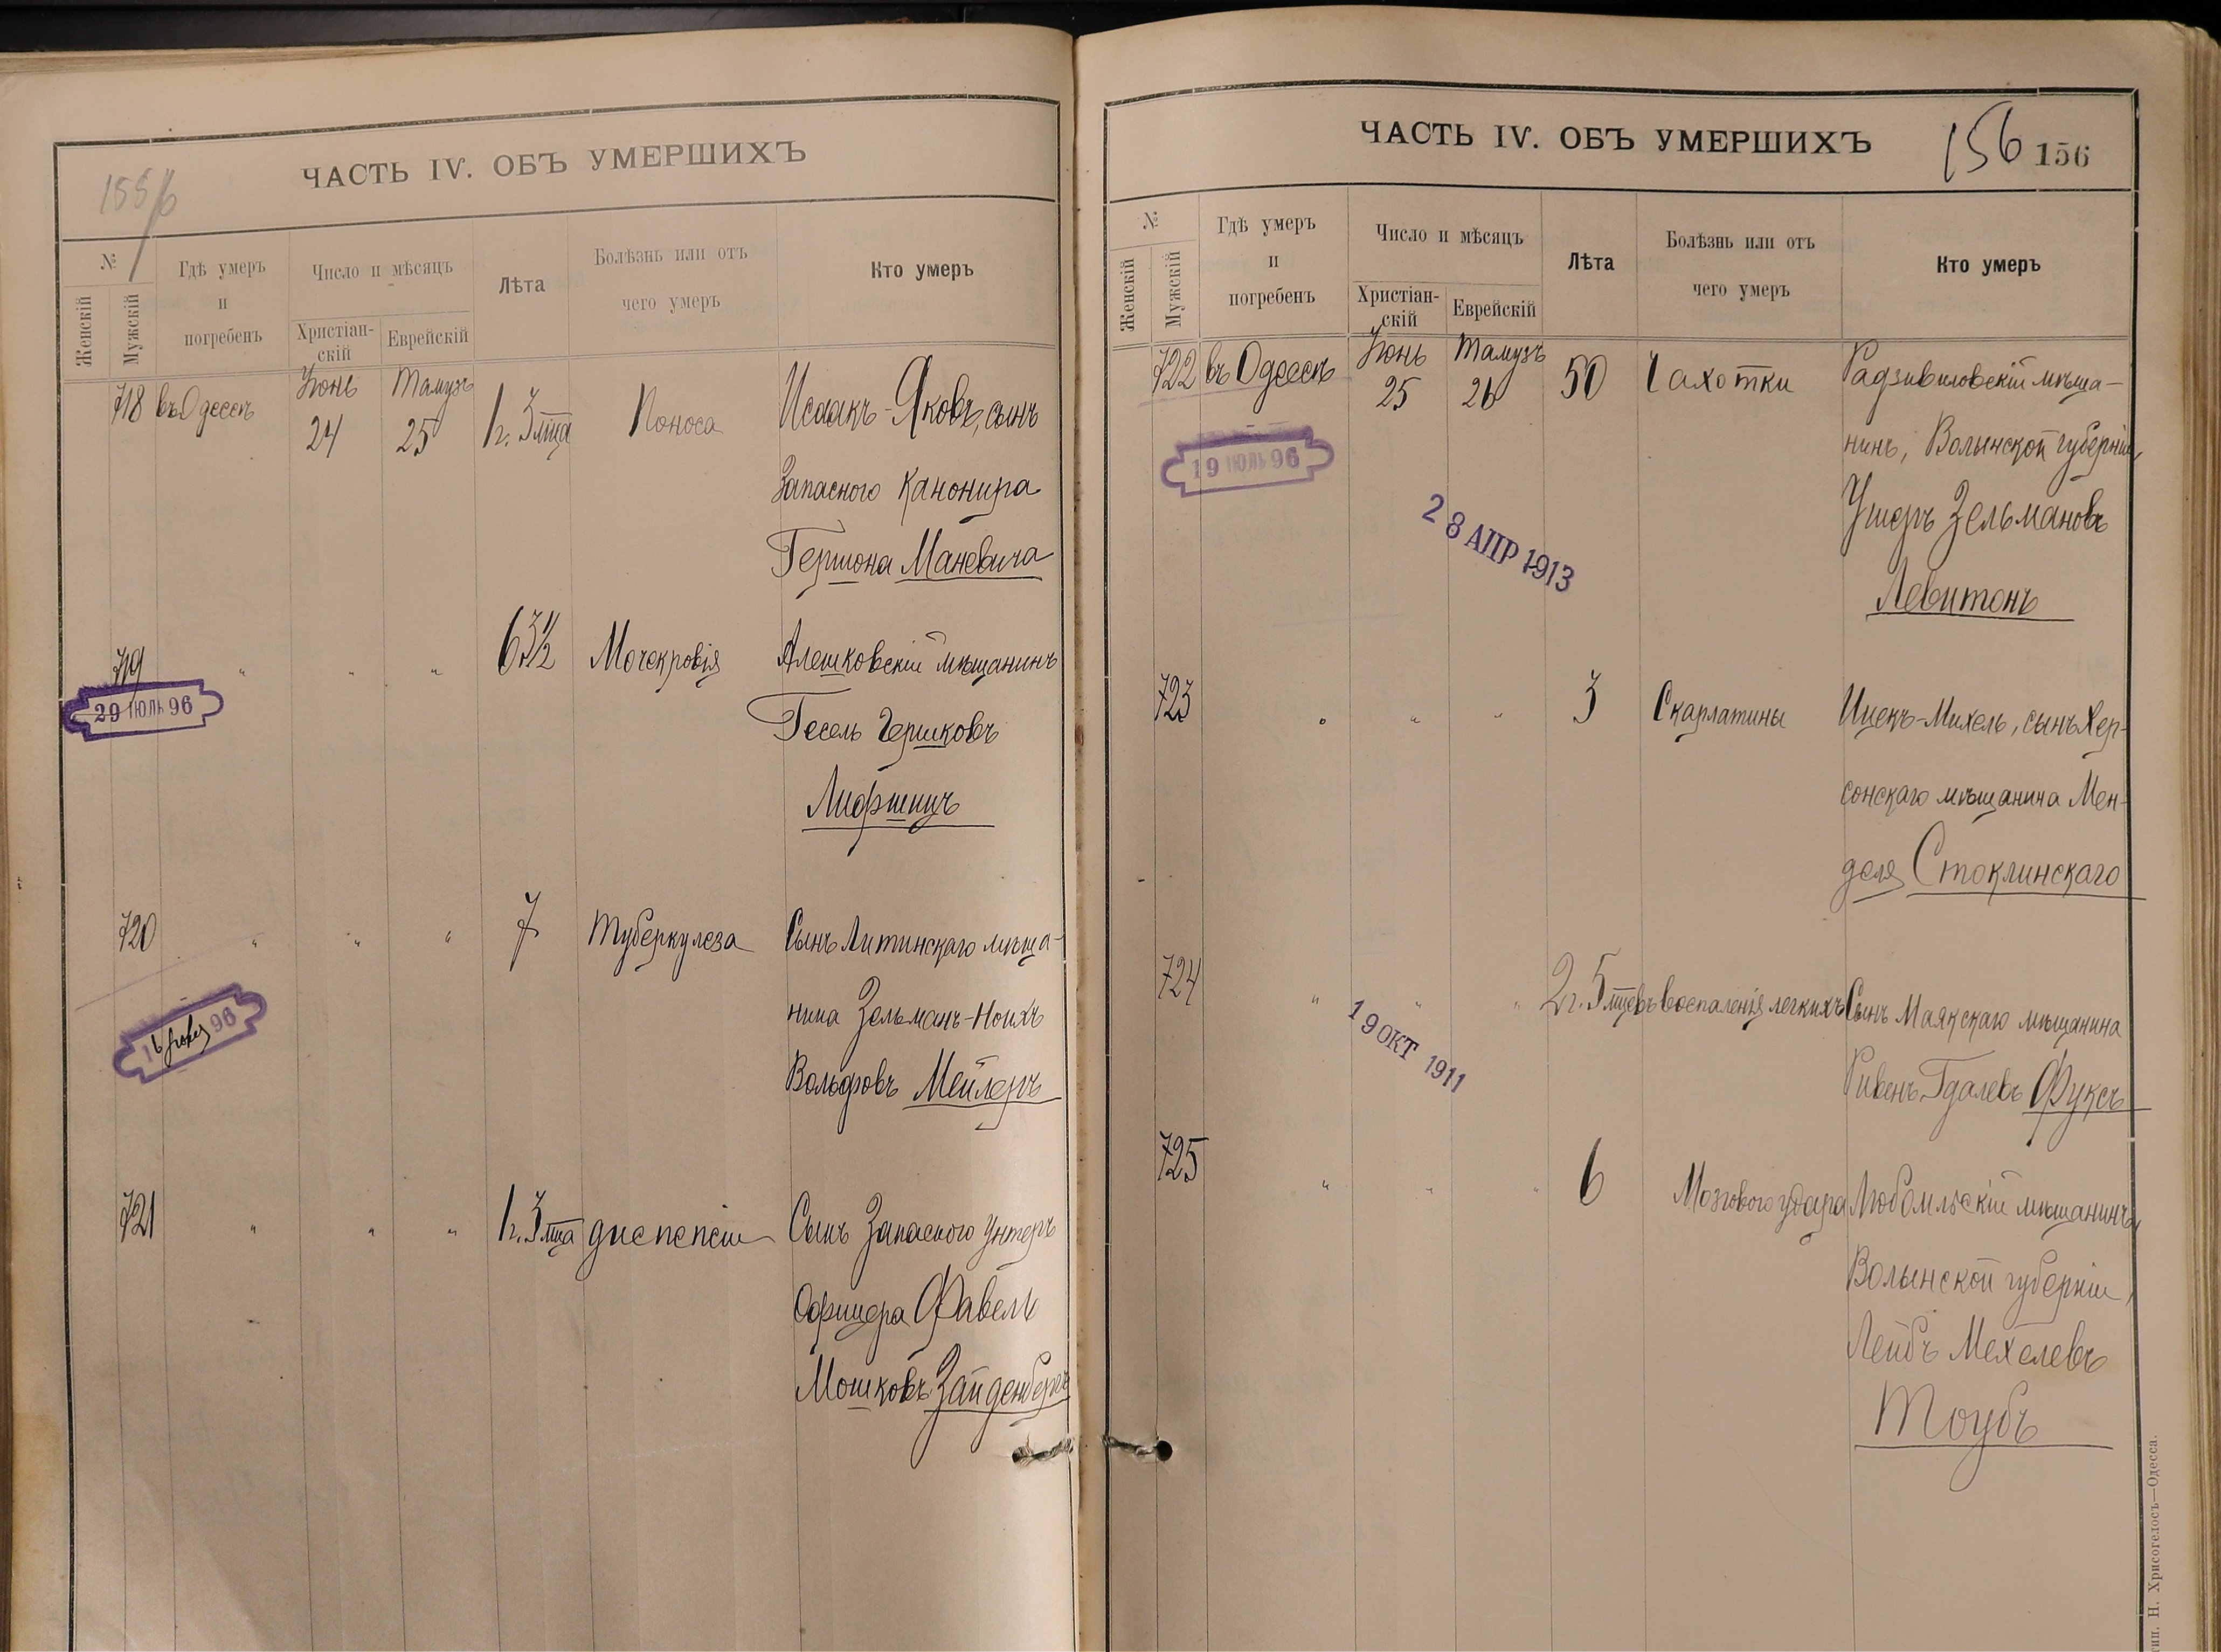 155/б
ЧАСТЬ IV. ОБЪ УМЕРШИХЪ
№
Женскій
Мужскій
Гдѣ умеръ
и
погребенъ
Число и мѣсяцъ
Христіан-
скій
Еврейскій
Лѣта
Болѣзнь или отъ
чего умеръ
Кто умеръ
718 въ Одессѣ Іюнь 24 Тамузъ 25 1 г. 3 мца Поноса Исаакъ-Яковъ, сынъ
Запаснаго Канонира
Гершона Маневича
719 " " " 63½ Мочекровія Алешковскій мѣщанинъ
29 ІЮЛЬ 96
Гесель Гершковъ
Лифшицъ
720 " " " 7 Туберкулеза Сынъ Литинскаго мѣща-
нина Зельманъ-Ноихъ
96
Вольфовъ Мейлеръ
721 " " " 1 г. 3 мца диспепсіи Сынъ Запасного унтеръ
Офицера Фавель
Мошковъ Зайденбергъ
ЧАСТЬ IV. ОБЪ УМЕРШИХЪ
156 156
№
Женскій
Мужскій
Гдѣ умеръ
и
погребенъ
Число и мѣсяцъ
Христіан-
скій
Еврейскій
Лѣта
Болѣзнь или отъ
чего умеръ
Кто умеръ
722 въ Одессѣ Іюнь 25 Тамузъ 26 50 Чахотки Радзивиловскій мѣща-
нинъ, Волынской губерніи
19 ІЮЛЬ 96
28 АПР 1913
Ушеръ Зельмановъ
Левитонъ
723 " " " 3 Скарлатины Ицекъ-Михель, сынъ Хер-
сонскаго мѣщанина Мен-
деля Стоклинскаго
724 " " " 2 г. 5 мцевъ воспаленія легкихъ Сынъ Маякскаго мѣщанина
19 ОКТ 1911
Ривенъ Гдалевъ Фуксъ
725 " " " 6 Мозгового удара Любомльскій мѣщанинъ,
Волынской губерніи,
Лейбъ Мехелевъ
Тоубъ
тип. Н. Хрисогелосъ—Одесса.